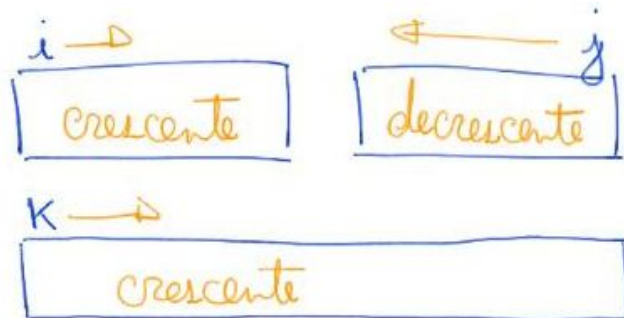 i j
crescente decrescente
K
crescente